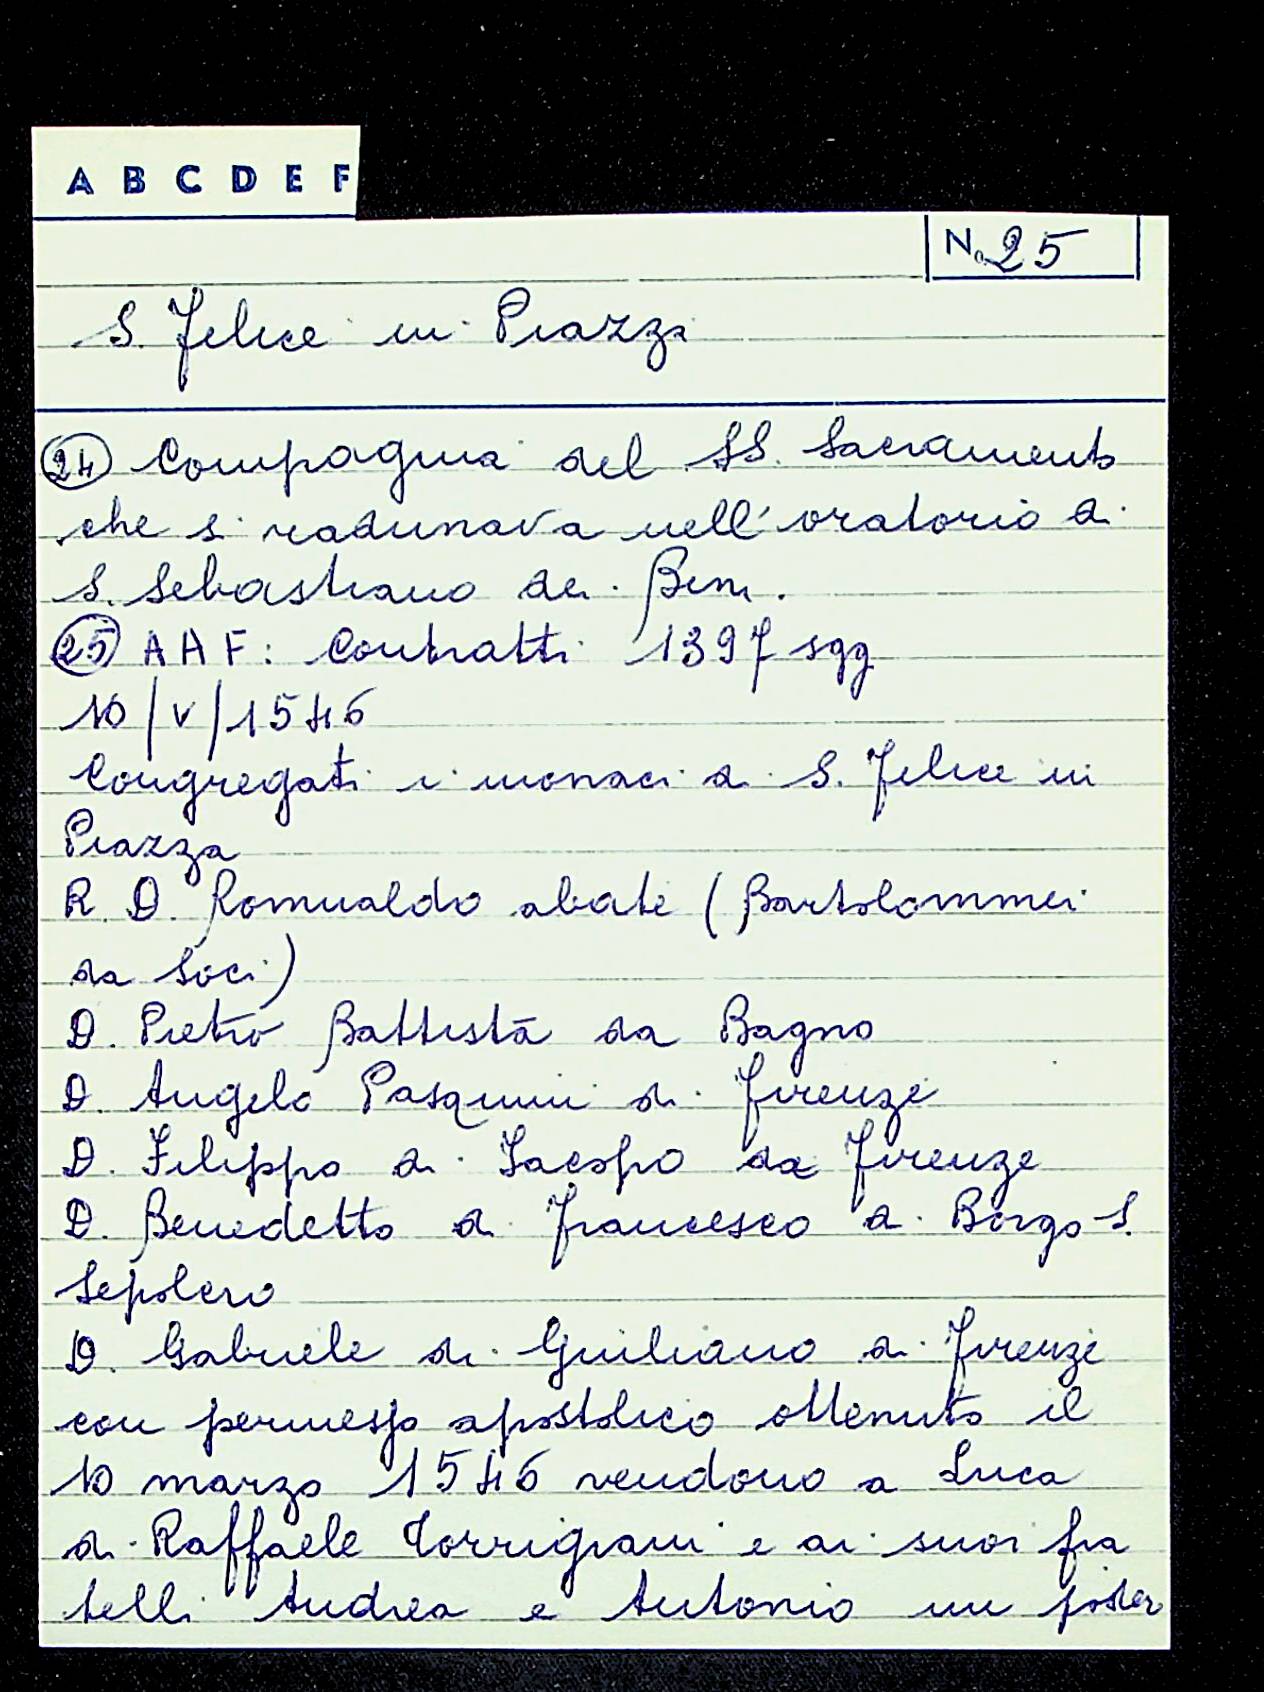 A B C D E F
No 25
S. Felice in Piazza
24 Compagnia del SS. Sacramento
che si radunava nell'oratorio di
S. Sebastiano dei Bini.
25 A A F: Contratti 1397 sgg
10/V/1546
Congregati i monaci di S. Felice in
Piazza
R. D. Romualdo abate (Bartolommei
da Soci)
D. Pietro Battista da Bagno
D. Angelo Pasquini di Firenze
D. Filippo di Jacopo da Firenze
D. Benedetto di Francesco di Borgo S.
Sepolcro
D. Gabriele di Giuliano di Firenze
con permesso apostolico ottenuto il
10 marzo 1546 vendono a Luca
di Raffaele Torrigiani e ai suoi fra
telli Andrea e Antonio un poder